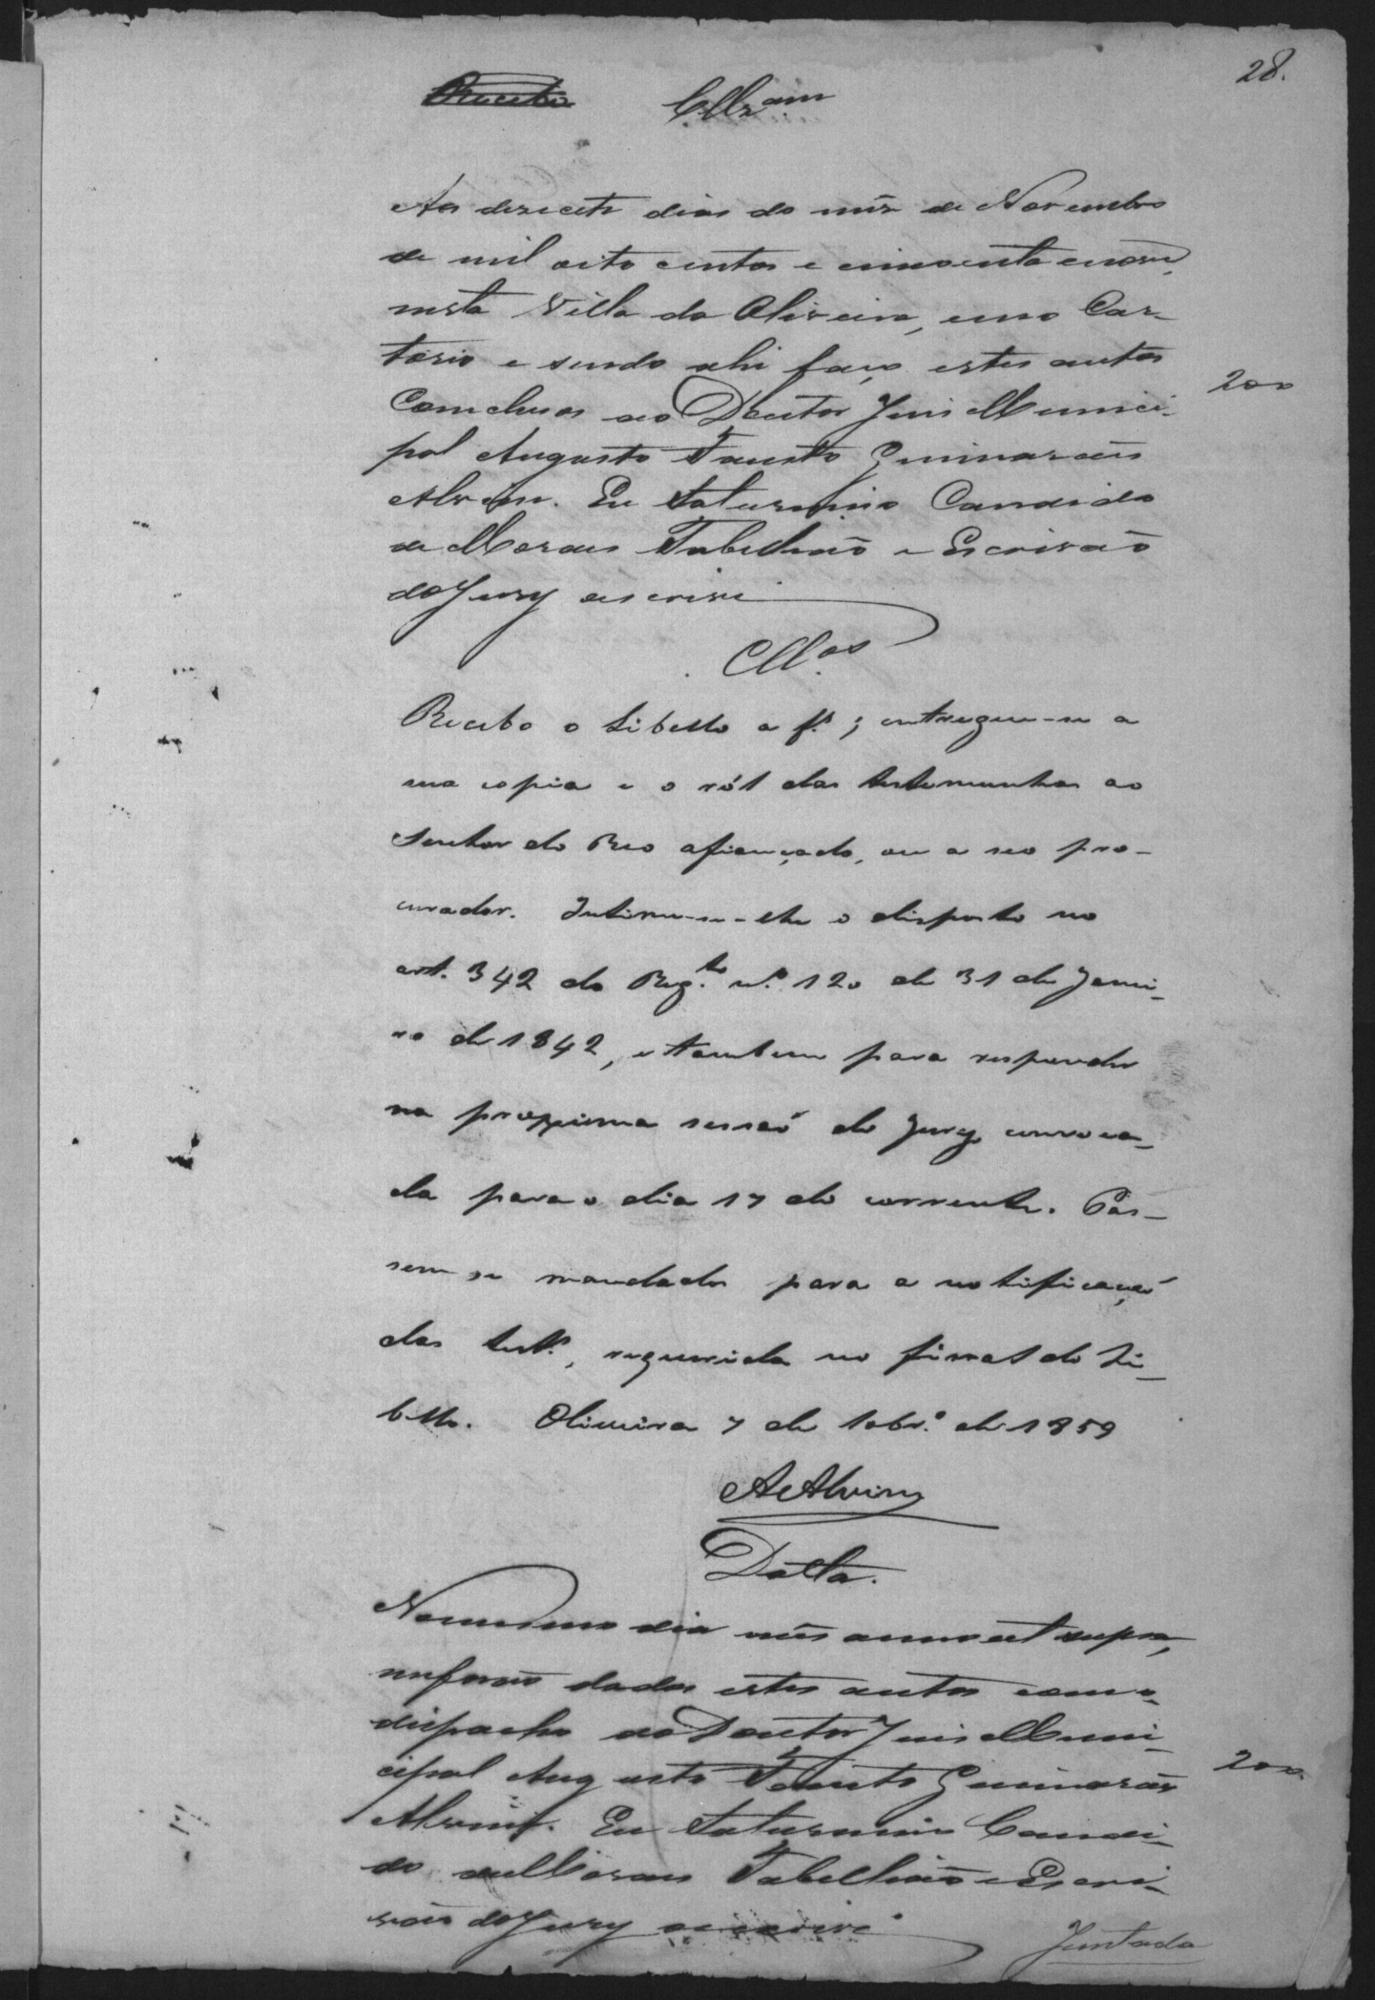 28.
Cllzam
Aos desecete dias do mês de Novembro
de mil oito centos e cincoenta enove,
nesta Villa da Oliveira, emo Car-
torio e sendo ahi faço estes autos
Comclusos ao Doutor Juis Munici-
pal Augusto Fausto Guimarães
Alvim. Eu Saturnino Candido
de Moraes Tabellião e Escrivão
do Jury oescrivi
Cllos
Recebo o Libello a f.s; entregue-se a
sua copia e o ról das testemunhas ao
Senhor do Reo afiançado, ou a seo pro-
curador. Intime-se-lhe o disposto no
art. 342 do Reg.to n.º 120 de 31 de Janei-
ro de 1842, e tambem para responder
na proxxima sessaõ do Jury convoca-
da para o dia 17 do corrente. Pas-
sem se mandados para a notificaçaõ
das test.s, requerida no final do Li-
bello. Oliveira 7 de 9obr.º de 1859
AAlvim
Datta.
Nomesmo dia mês annoet supra,
meforão dados estes autos com o
dispacho do Doutor Juis Muni-
cipal Augusto Fausto Guimarães
Alvim. Eu Saturnino Candi-
do de Moraes Tabellião e Escri-
vão do Jury oescrivi
Juntada
200
200